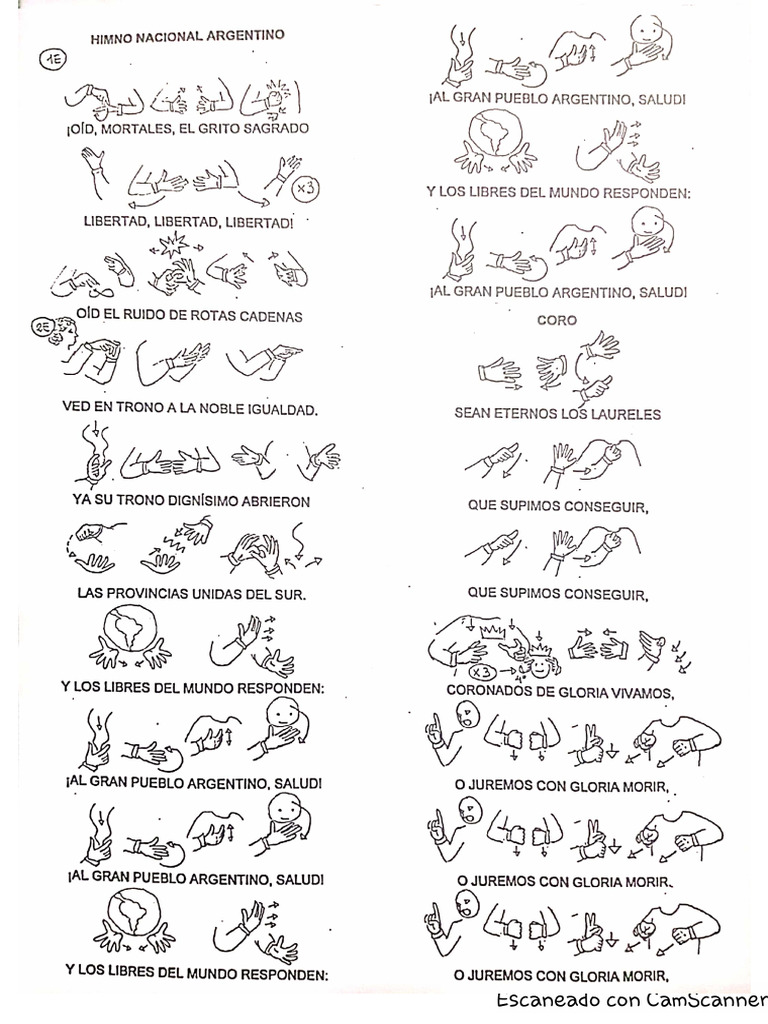 HIMNO NACIONAL ARGENTINO
1E
¡OÍD, MORTALES, EL GRITO SAGRADO
x3
LIBERTAD, LIBERTAD, LIBERTAD!
OÍD EL RUIDO DE ROTAS CADENAS
2E
VED EN TRONO A LA NOBLE IGUALDAD.
YA SU TRONO DIGNÍSIMO ABRIERON
LAS PROVINCIAS UNIDAS DEL SUR.
Y LOS LIBRES DEL MUNDO RESPONDEN:
¡AL GRAN PUEBLO ARGENTINO, SALUD!
¡AL GRAN PUEBLO ARGENTINO, SALUD!
Y LOS LIBRES DEL MUNDO RESPONDEN:
¡AL GRAN PUEBLO ARGENTINO, SALUD!
Y LOS LIBRES DEL MUNDO RESPONDEN:
¡AL GRAN PUEBLO ARGENTINO, SALUD!
CORO
SEAN ETERNOS LOS LAURELES
QUE SUPIMOS CONSEGUIR,
QUE SUPIMOS CONSEGUIR,
x3
CORONADOS DE GLORIA VIVAMOS,
O JUREMOS CON GLORIA MORIR,
O JUREMOS CON GLORIA MORIR.
O JUREMOS CON GLORIA MORIR,
Escaneado con CamScanner